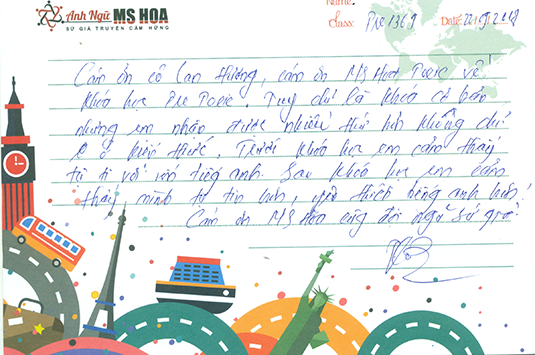 Anh Ngữ MS HOA
SỨ GIẢ TRUYỀN CẢM HỨNG
Name:
Class: PRE 1369 Date: 22/9/2018
Cảm ơn cô Lan Hương, cảm ơn MS Hoa Toeic về
khóa học Pre Toeic. Tuy chỉ là khóa cơ bản
nhưng em nhận được nhiều thứ hơn không chỉ
là ở kiến thức. Trước khóa học em cảm thấy
tự ti với môn tiếng anh. Sau khóa học em cảm
thấy mình tự tin hơn, yêu thích tiếng anh hơn!
Cảm ơn MS Hoa cùng đội ngũ sứ giả!